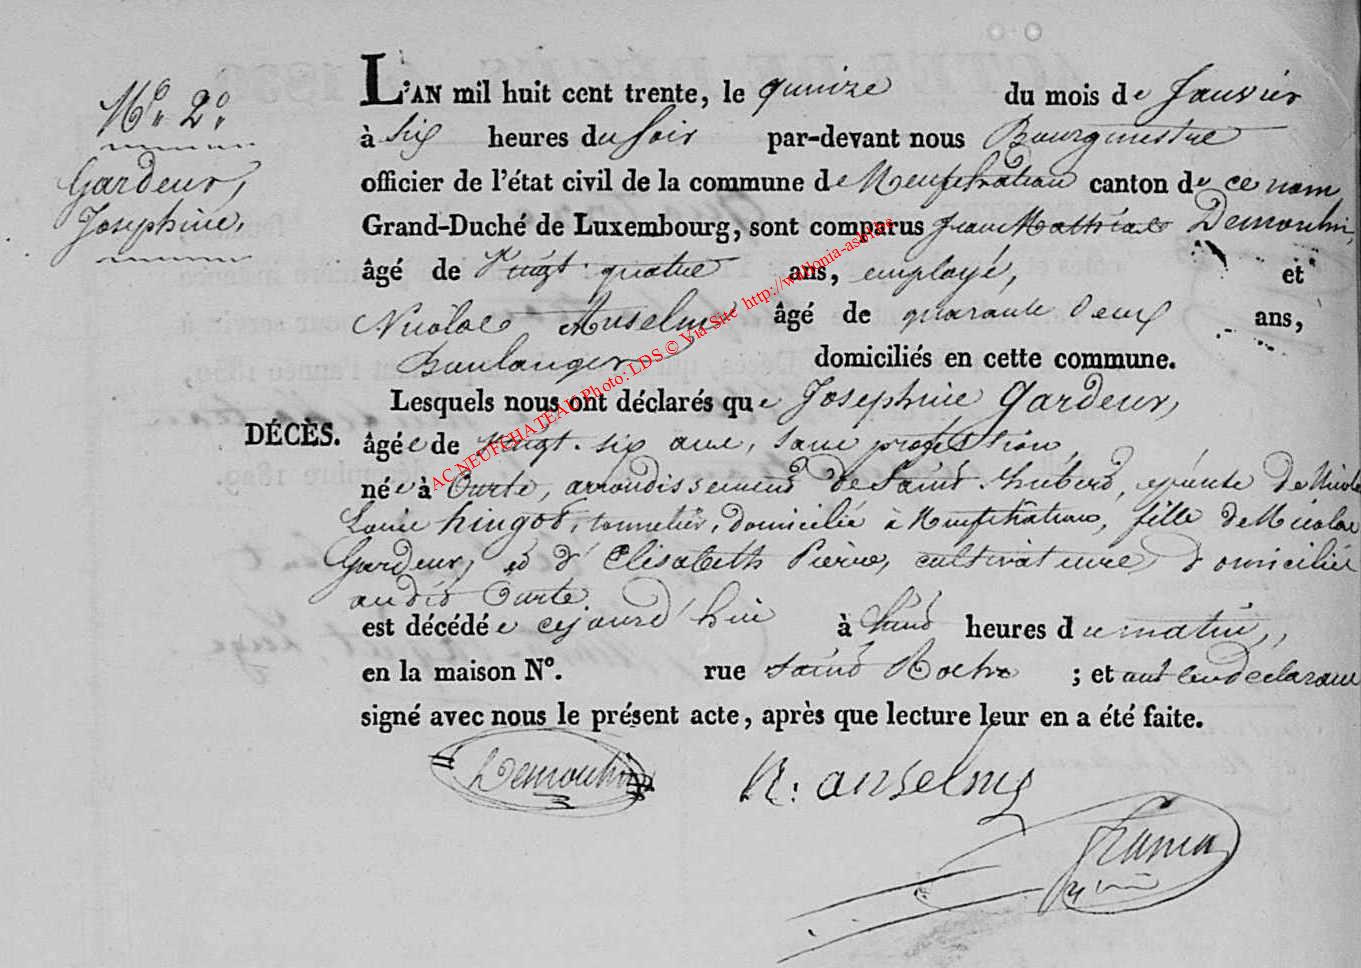 N.º 2.º
Gardeur,
Josephine,
L'AN mil huit cent trente, le quinze du mois de Janvier
à six heures du soir par-devant nous Bourgmestre
officier de l'état civil de la commune de Neufchateau canton de ce nom
Grand-Duché de Luxembourg, sont comparus Jean Mathias Demoulin,
âgé de vingt-quatre ans, employé, et
Nicolas Anselme âgé de quarante deux ans,
Boulanger domiciliés en cette commune.
Lesquels nous ont déclarés que Josephine Gardeur,
DÉCÈS.
âgée de vingt-six ans, sans profession,
née à Ourte, arrondissement de Saint hubert, épouse de Nicolas
Louis hingot, tonnelier, domiciliée à Neufchateau, fille de Nicolas
Gardeur, et d'Elisabeth Pierre, cultivateurs, domiciliés
audit Ourte
est décédée cejourd'hui à huit heures du matin,
en la maison Nº. rue Saint Roch ; et ont les declarans
signé avec nous le présent acte, après que lecture leur en a été faite.
Demoulin N: anselme
AC NEUFCHATEAU Photo: LDS © Via Site http://wallonia-asbl.be